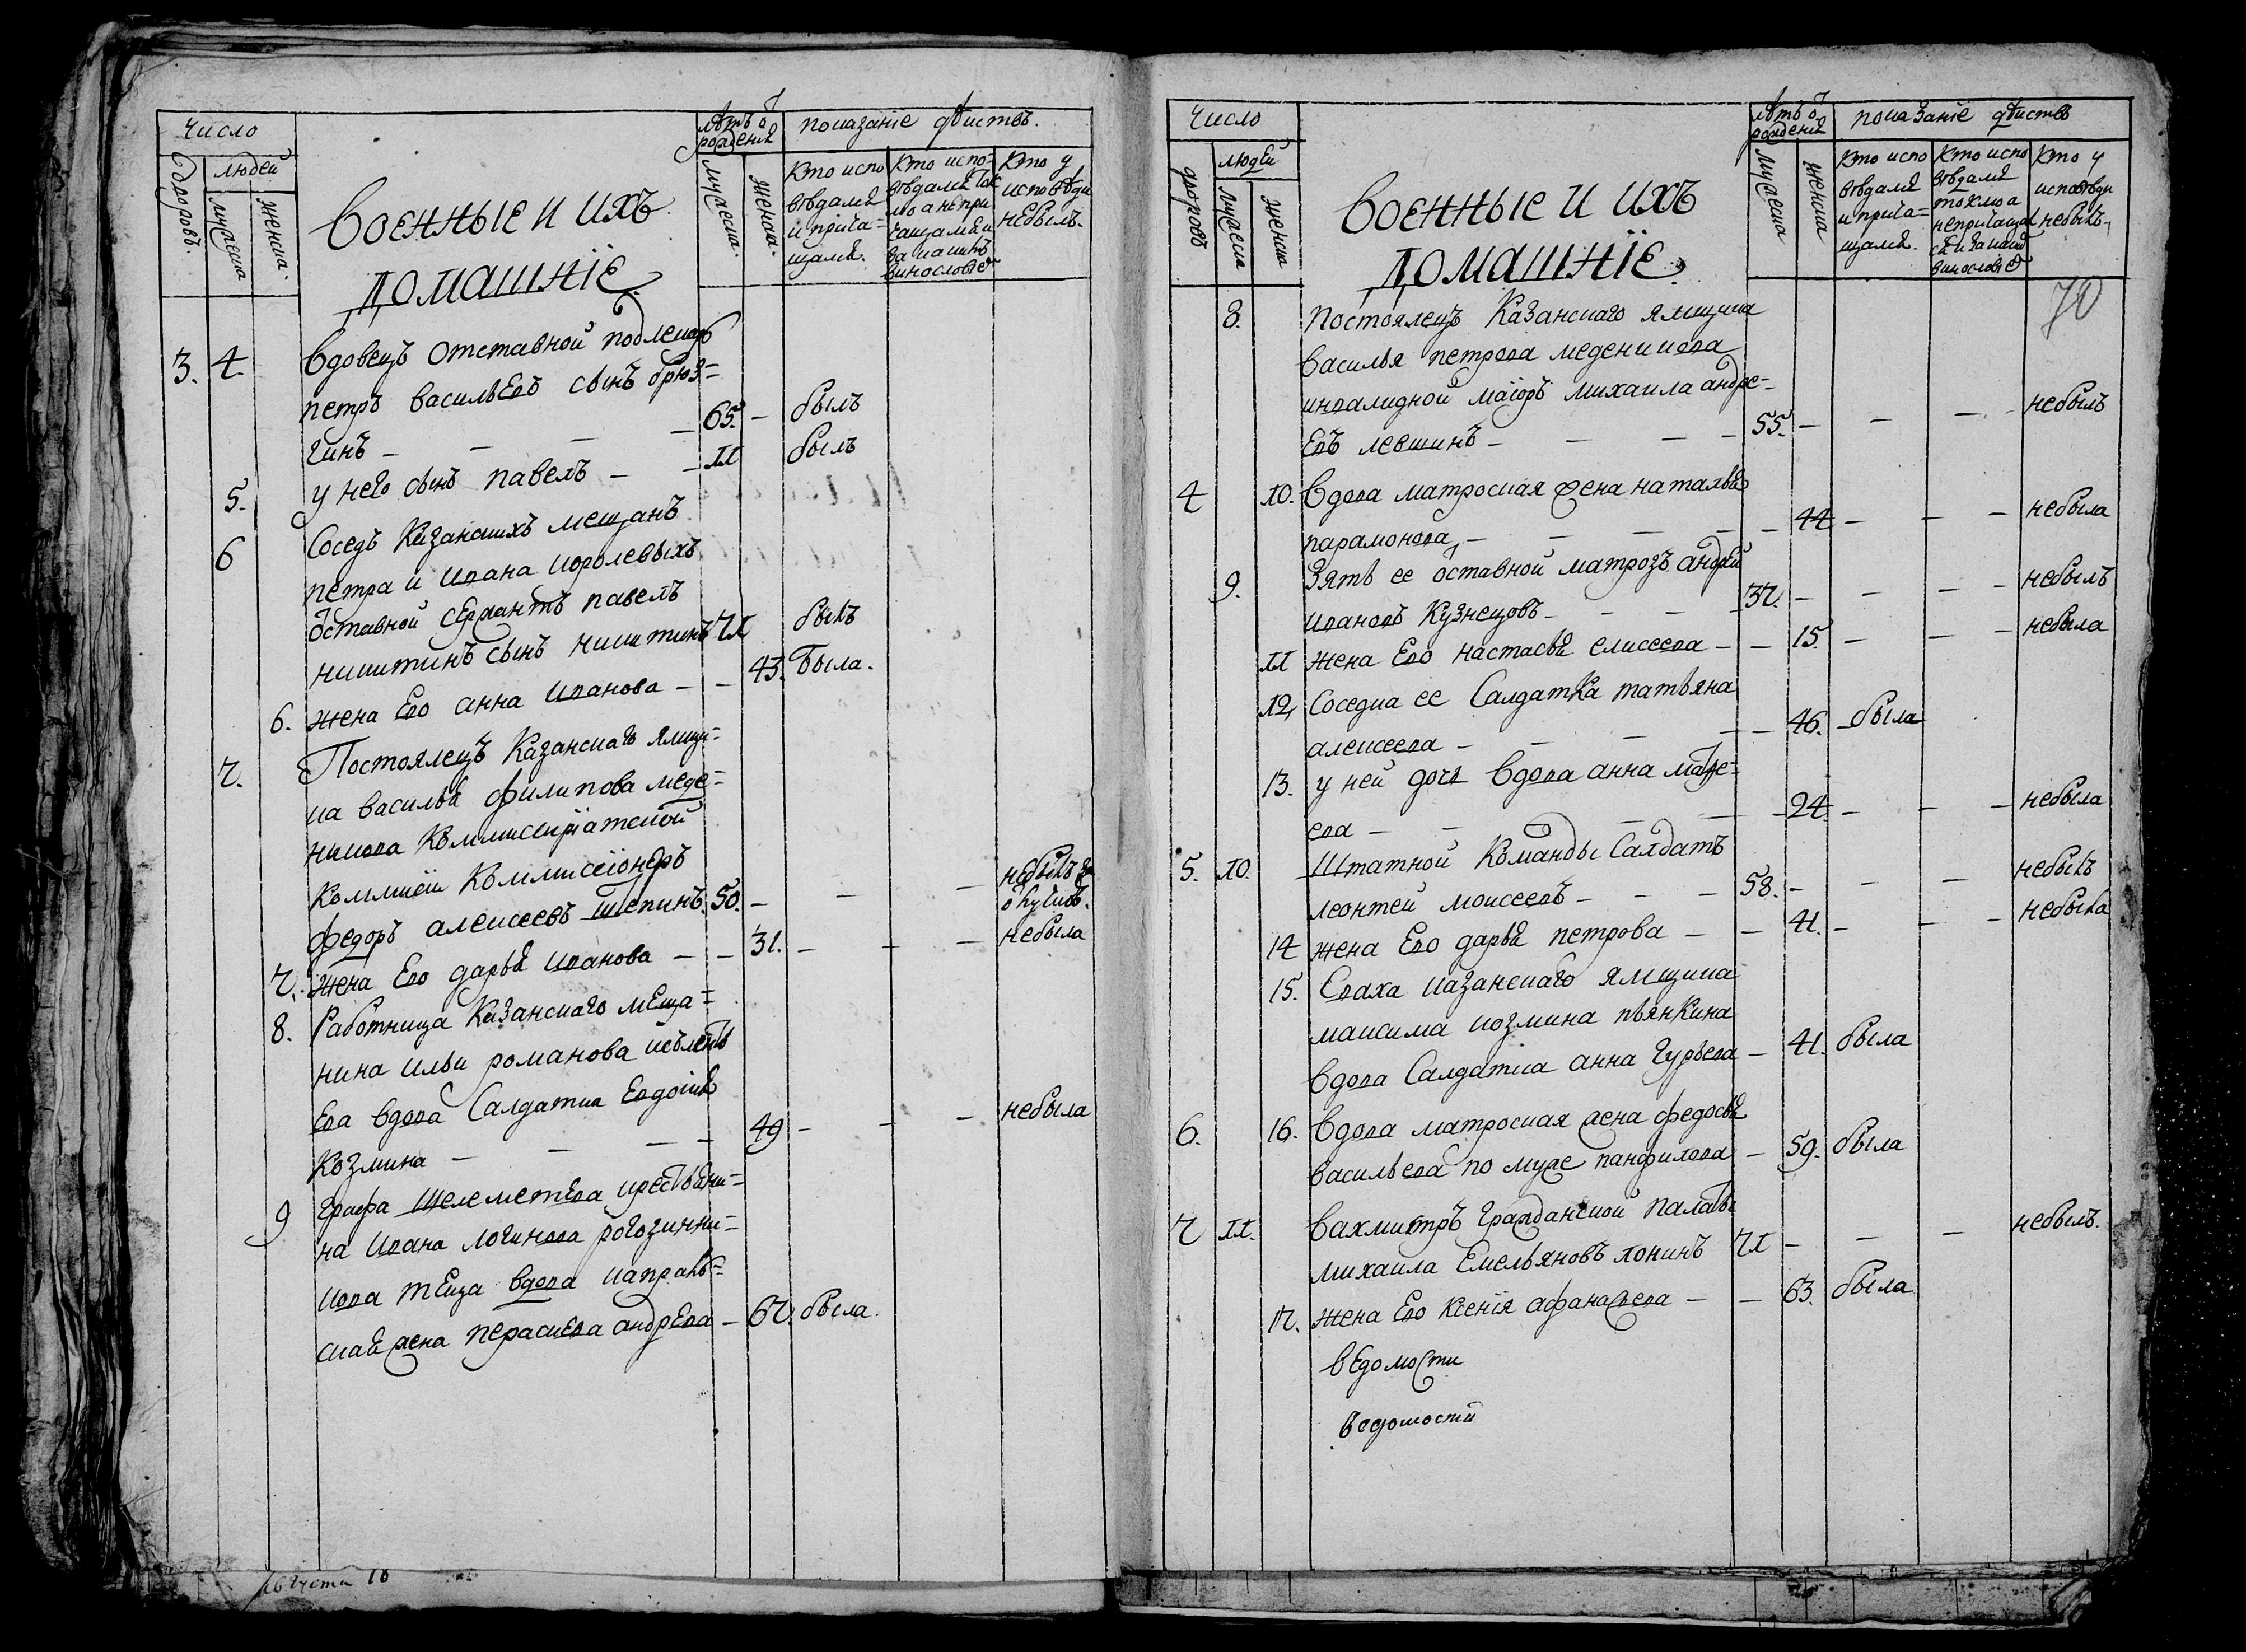 Число
лѣтъ ѿ рожденїя
показанїе дѣиствъ.
дворовъ.
людей
мужеска
женска.
Военные и ихъ
домашнїе
мужеска.
женска.
Кто испо
вѣдался
и прича=
щался.
Кто испо=
вѣдался ток
мо а непри
чащался и
за какимъ
винословїем
Кто у
исповѣди
небылъ.
3. 4. Вдовецъ отставной подлекарь
петръ васильевъ сынъ брюз=
гинъ — — — — 65. — былъ
5. у него сынъ павелъ — — 11 былъ
6 Соседъ Казанскихъ мещанъ
петра и ивана королевыхъ
ѿставной сержантъ павелъ
никитинъ сынъ никитинъ 71 былъ
6. жена Его анна иванова — — 43. была.
7. Постоялецъ Казанскаго ямщи=
ка василья филипова меде=
никова Коммиссирїатской
коммисїи Коммиссїонеръ
федоръ алексеевъ щепинъ. 50. — — — небылъ за
ѿлучкою.
7. жена Его дарья иванова — — 31. — — — небыла
8. Работница Казанскаго меща=
нина ильи романова
ева вдова Салдатка Евдокия
Козмина — — — — 49 — — — небыла
9 Графа Шелеметева крестьяни=
на ивана логинова рогозинни=
кова теща вдова капраль=
ская жена перасковья андреева — 67. была.
августа 10
Число
лѣтъ ѿ рожденїя
показанїе дѣиствъ
дворовъ
людей
мужеска
женска
Военные и ихъ
домашнїе.
мужеска
женска
Кто испо
вѣдался
и прича=
щался.
Кто испо
вѣдался
токмо а
непричащал
ся и за каким
винословїем
Кто у
исповѣди
небылъ.
70
8. Постоялецъ Казанскаго ямщика
василья петрова меденикова
инвалидной маїоръ михаила андре=
евъ левшинъ — — — — 55. — — — небылъ
4 10. Вдова матроская жена наталья
парамонова, — — — — — 44 — — — небыла
9. Зять ее ѿставной матрозъ андрей
ивановъ Кузнецовъ — — — 37. — — — — небылъ
11 жена Его настасья елисеева — — 15. — — — небыла
12. Соседка ее Салдатка татьяна
алексеева — — — — — 46. была
13. у ней дочь вдова анна матве=
ева — — — — — 24. — — — небыла
5. 10. Штатной Команды Салдатъ
леонтей моисеевъ — — — 58. — — — небылъ
14 жена Его дарья петрова — — 41. — — — небыла
15. Сваха казанскаго ямщика
максима козмина пьянкина
вдова Салдатка анна Гурьева — 41. была
6. 16. Вдова матроская жена федосья
васильева по муже панфилова — 59. была
7 11. Вахмистръ гражданской палаты
михаила Емельяновъ лонинъ 71 — — — небылъ.
17. жена Его Ксенїя афанасьева — — 63. была
ведомости
ведомостй